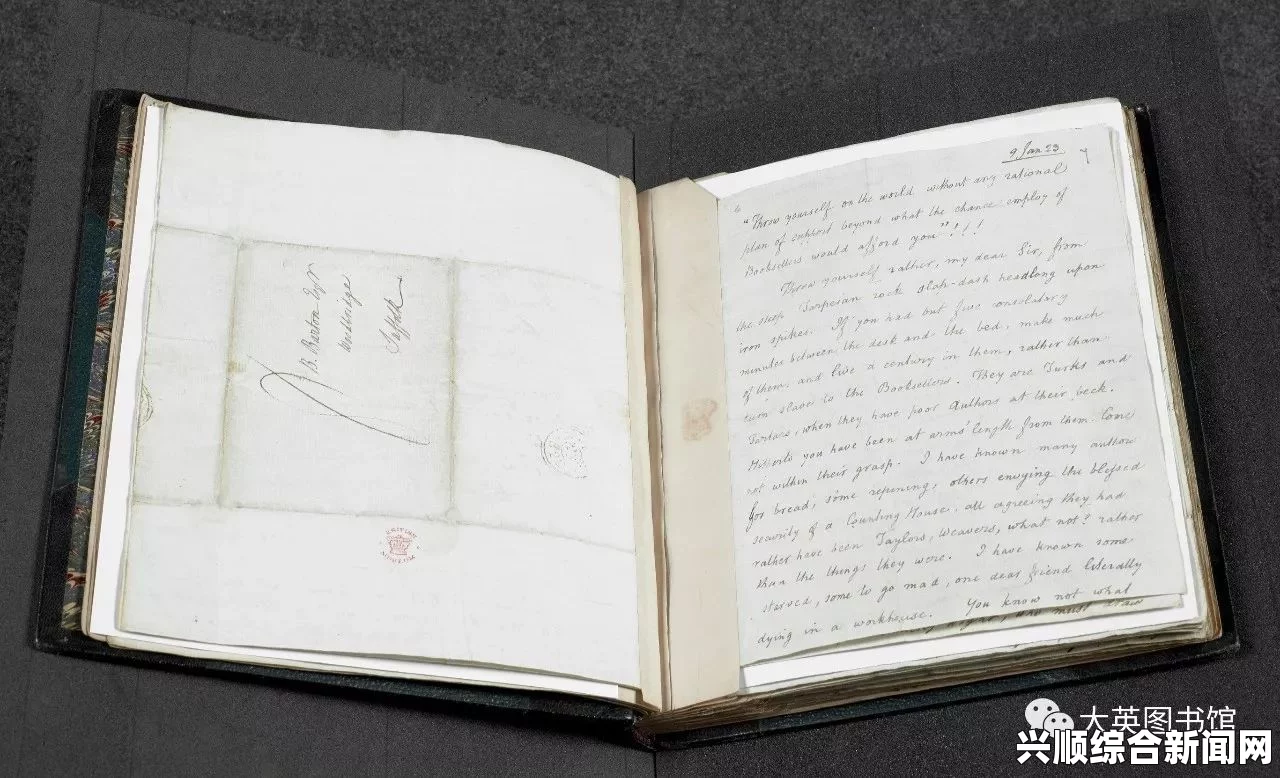 B Barton Esqr
Woodbridge
Suffolk
BRITISH
MUSEUM
9 Jan 23
"Throw yourself on the world without any rational
plan of support beyond what the chance employ of
Booksellers would afford you"!!!
Throw yourself rather, my dear Sir, from
the steep Tarpeian rock slap-dash headlong upon
iron spikes. If you had but five consolatory
minutes between the desk and the bed, make much
of them, and live a century in them, rather than
turn slave to the Booksellers. They are Turks and
Tartars, when they have poor Authors at their beck.
Hitherto you have been at arms' length from them. Come
not within their grasp. I have known many authors
for bread, some repining, others envying the blessed
security of a Counting House, all agreeing they had
rather have been Taylors, Weavers, what not? rather
than the things they were. I have known some
starved, some to go mad, one dear friend literally
dying in a workhouse. You know not what
must draw
大英图书馆
兴顺综合新闻网